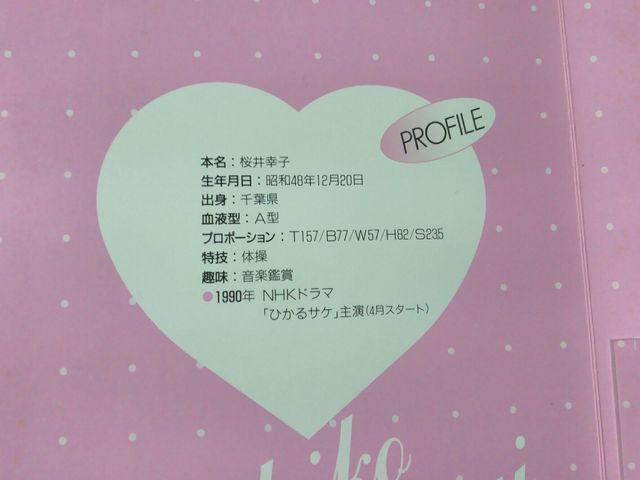 PROFILE
本名：桜井幸子
生年月日：昭和48年12月20日
出身：千葉県
血液型：A型
プロポーション：T157/B77/W57/H82/S23.5
特技：体操
趣味：音楽鑑賞
●1990年 NHKドラマ
「ひかるサケ」主演（4月スタート）